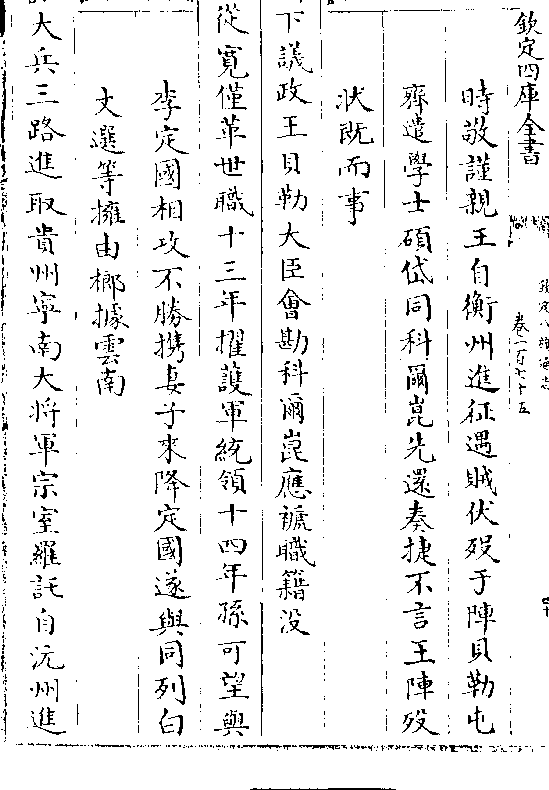 欽定四庫全書
卷一百七十五
時敬謹親王自衡州進征遇賊伏歿于陣貝勒屯
齊遣學士碩岱同科爾崑先還奏捷不言王陣歿
狀既而事
下議政王貝勒大臣會勘科爾崑應褫職籍没
從寛僅革世職十三年擢䕶軍統領十四年孫可望與
李定國相攻不勝携妻子來降定國遂與同列白
文選等擁由榔據雲南
大兵三路進取貴州寧南大將軍宗室羅託自沅州進